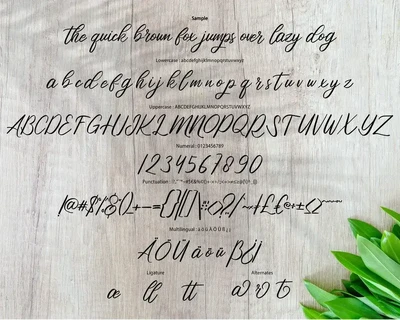 Sample
the quick brown fox jumps over lazy dog
Lowercase : abcdefghijklmnopqrstuvwxyz
a b c d e f g h i j k l m n o p q r s t u v w x y z
Uppercase : ABCDEFGHIJKLMNOPQRSTUVWXYZ
ABCDEFGHIJKLMNOPQRSTUVWXYZ
Numeral : 0123456789
1234567890
Punctuation :
Multilingual : ä ö ü Ä Ö Ü ß ¿ ¡
ÄÖÜ ä ö ü ß¿¡
Ligature Alternates
æ ll tt